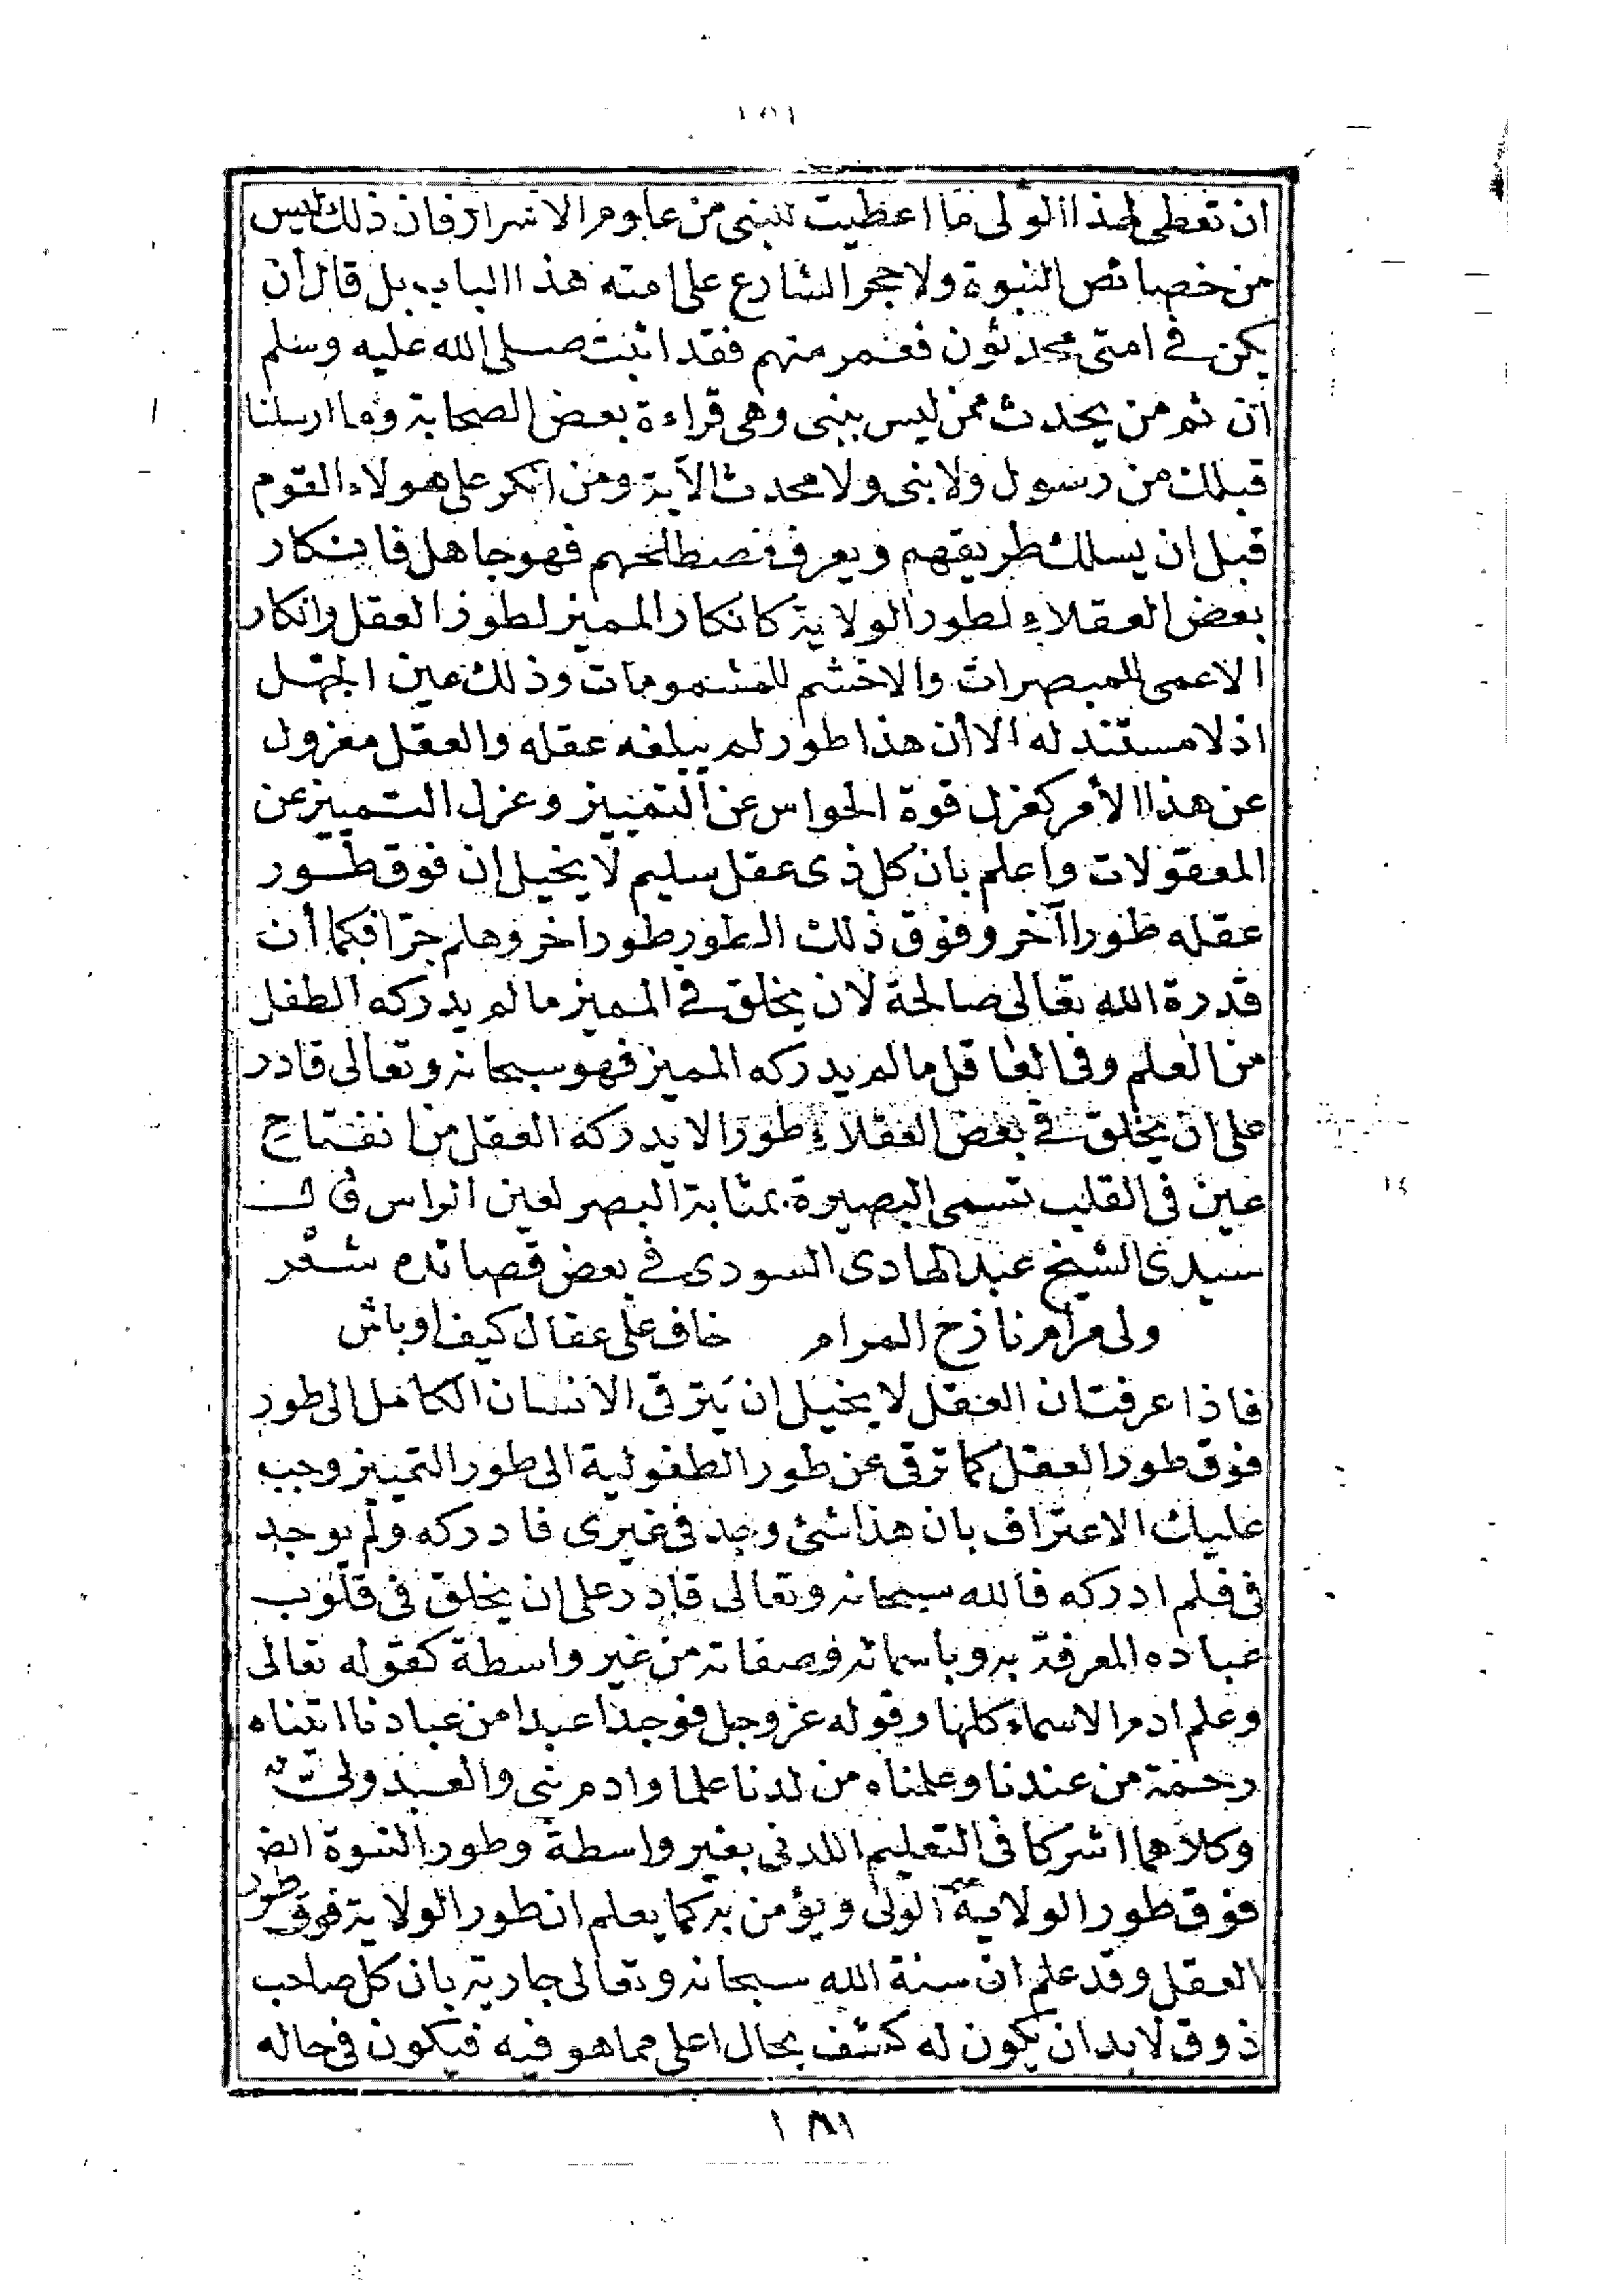 ١٥١
ان تعطى لهذا الولى ما اعطيت للنبى من علوم الاسرار فان ذلك ليس
من خصائص النبوة ولا حجر الشارع على امته هذا الباب بل قال أن
يكن فى امتى محدثون فعمر منهم فقد اثبت صلى الله عليه وسلم
أن ثم من يحدث ممن ليس بنبى وهى قراءة بعض الصحابة وما ارسلنا
قبلك من رسول ولا نبى ولا محدث الآية ومن انكر على هولاء القوم
قبل ان يسلك طريقهم ويعرف مصطلحهم فهو جاهل فانكار
بعض العقلاء لطور الولاية كانكار المميز لطور العقل وانكار
الاعمى للمبصرات والاخشم للمشمومات وذلك عين الجهل
اذ لا مستند له الا أن هذا طور لم يبلغه عقله والعقل معزول
عن هذا الأمر كعزل قوة الحواس عن التمييز وعزل التمييز عن
المعقولات واعلم بان كل ذى عقل سليم لا يحيل ان فوق طور
عقله طورا آخر وفوق ذلك الطور طورا خر وهلم جرّا فكما أن
قدرة الله تعالى صالحة لان يخلق فى المميز ما لم يدركه الطفل
من العلم وفى العاقل ما لم يدركه المميز فهو سبحانه وتعالى قادر
على ان يخلق فى بعض العقلاء طورا لا يدركه العقل من انفتاح
عين فى القلب تسمى البصيرة بمثابة البصر لعين الراس
سيدى الشيخ عبد الهادى السودى فى بعض قصائده شعر
ولى مرام نازح المرام خاف على عقال كيف اوباش
فاذا عرفت ان العقل لا يحيل ان يترقى الانسان الكامل الى طور
فوق طور العقل كما ترقى عن طور الطفولية الى طور التمييز وجب
عليك الاعتراف بان هذا شئ وجد فى غيرى فادركه ولم يوجد
فى فلم ادركه فالله سبحانه وتعالى قادر على ان يخلق فى قلوب
عباده المعرفة به وباسمائه وصفاته من غير واسطة كقوله تعالى
وعلم ادم الاسماء كلها وقوله عز وجل فوجدا عبدا من عبادنا اتيناه
رحمة من عندنا وعلمناه من لدنا علما وادم نبى والعبد ولىّ
وكلاهما اشركا فى التعليم اللدنى بغير واسطة وطور النبوة ايضا
فوق طور الولاية الولى ويؤمن به كما يعلم ان طور الولاية فوق طور
العقل وقد علم ان سنة الله سبحانه وتعالى جارية بان كل صاحب
ذوق لا بد ان يكون له كشف بحال اعلى مما هو فيه فيكون فى حاله
١٨١